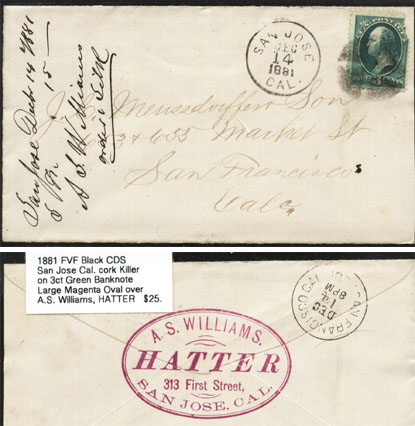 San Jose Dec 14 1881
15
A S Williams
order & Silk
SAN JOSE
DEC
14
1881
CAL.
Son
653 & 655 Market St
San Francisco
Cala.
1881 FVF Black CDS
San Jose Cal. cork Killer
on 3ct Green Banknote
Large Magenta Oval over
A.S. Williams, HATTER $25.
SAN FRANCISCO CAL.
DEC
14
8PM
A.S. WILLIAMS.
HATTER
313 First Street,
SAN JOSE. CAL.